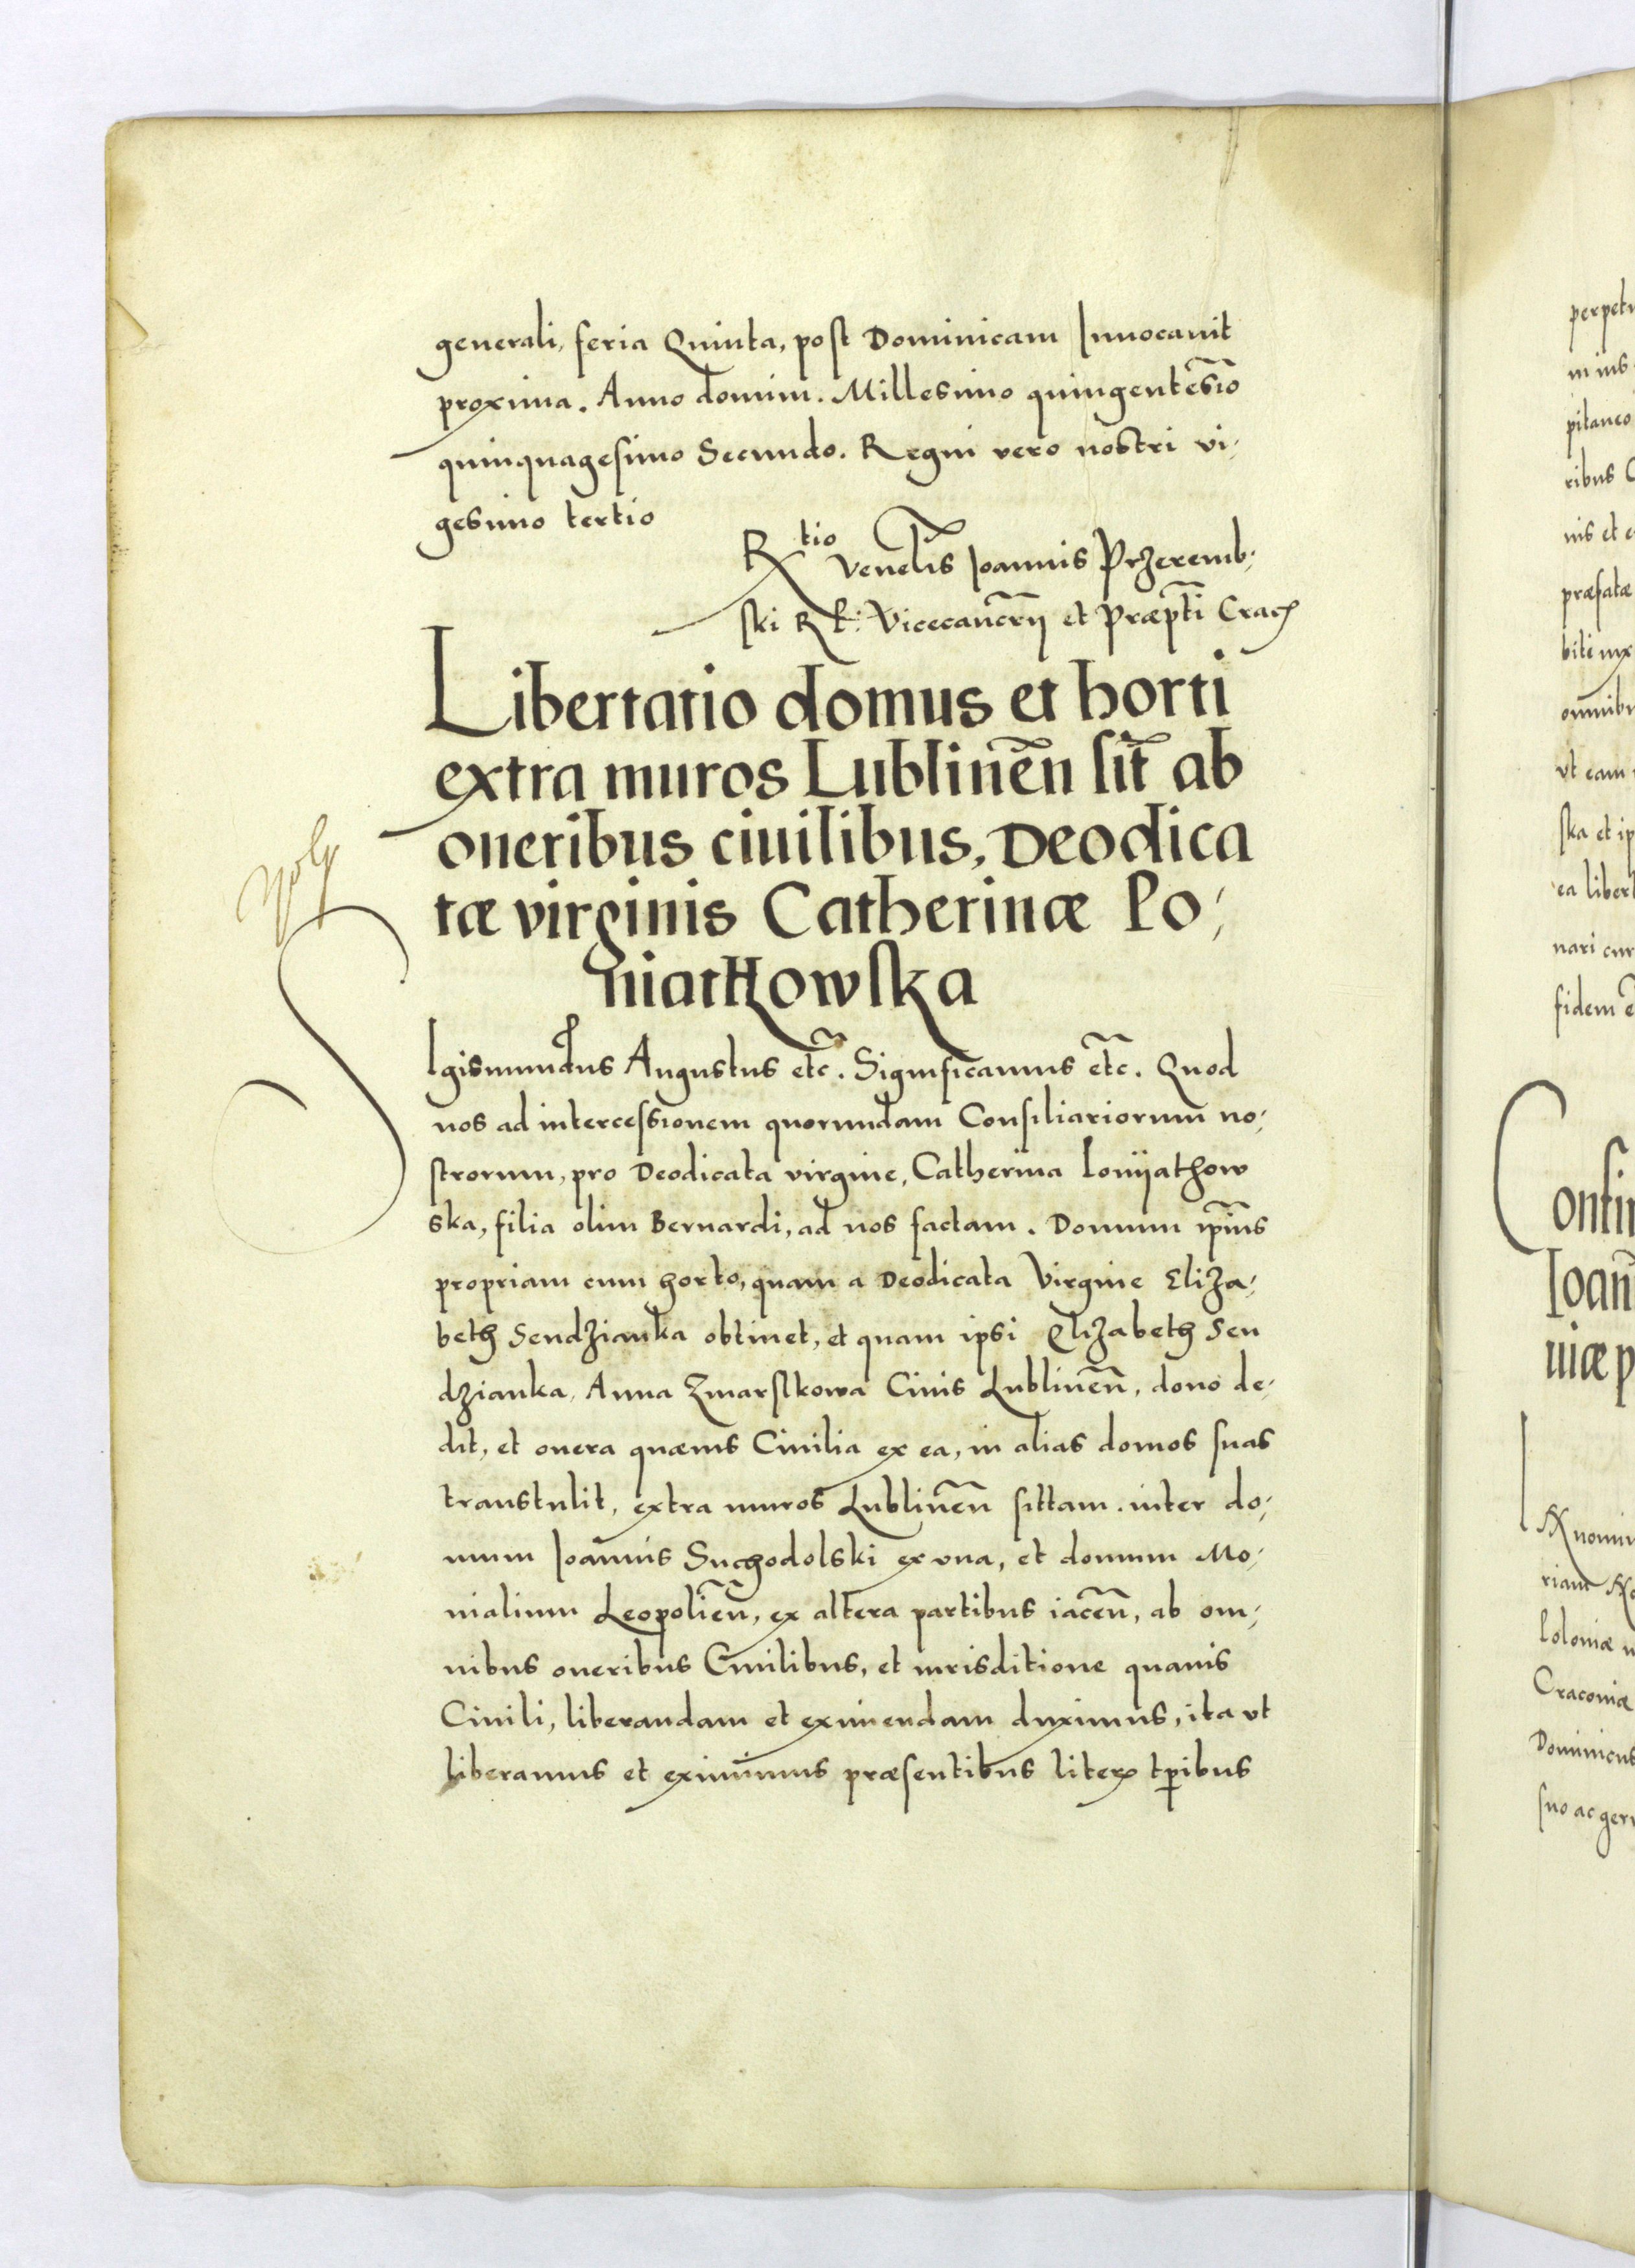 generali, feria Quinta, post Dominicam Inuocauit
proxima. Anno domini. Millesimo quingentesĩo
quinquagesimo Secundo. Regni vero nostri vi,
gesimo tertio
Rtio Venelis̃ Ioannis Przeremb,
ski R P: Vicecancr̃ij et Præpt̃i Crac
Libertatio domus et horti
extra muros Lublineñ sit̃ ab
oneribus ciuilibus, Deodica
tæ virginis Catherinæ Po,
niathowska
SIgismundus Augustus etc̃. Significamus etc̃. Quod
nos ad intercessionem quorundam Consiliariorum no,
strorum, pro Deodicata virgine, Catherina Poniiathow
ska, filia olim Bernardi, ad nos factam. Domum ip̃ius
propriam cum horto, quam a Deodicata Virgine Eliza,
beth Sendzianka obtinet, et quam ipsi Elizabeth Sen
dzianka, Anna Zmarslkowa Ciuis Lublineñ, dono de,
dit, et onera quæuis Ciuilia ex ea, in alias domos suas
transtulit, extra muros Lublineñ sittam. inter do,
mum Ioannis Suchodolski ex vna, et domum Mo,
nialium Leopolieñ, ex altera partibus iaceñ, ab om,
nibus oneribus Ciuilibus, et iurisditione quauis
Ciuili, liberandam et eximendam duximus, ita vt
liberamus et eximimus præsentibus literis tp̃ibus
perpetu
pitaneo
ribus C
nis et e
præfatæ
omnibu
vt eam
ska et ip
ea liber
nari cur
fidem e
Confir
Ioañ
uiæ p
nomin
riam
Poloniæ
Cracouiæ
Dominicus
suo ac ger